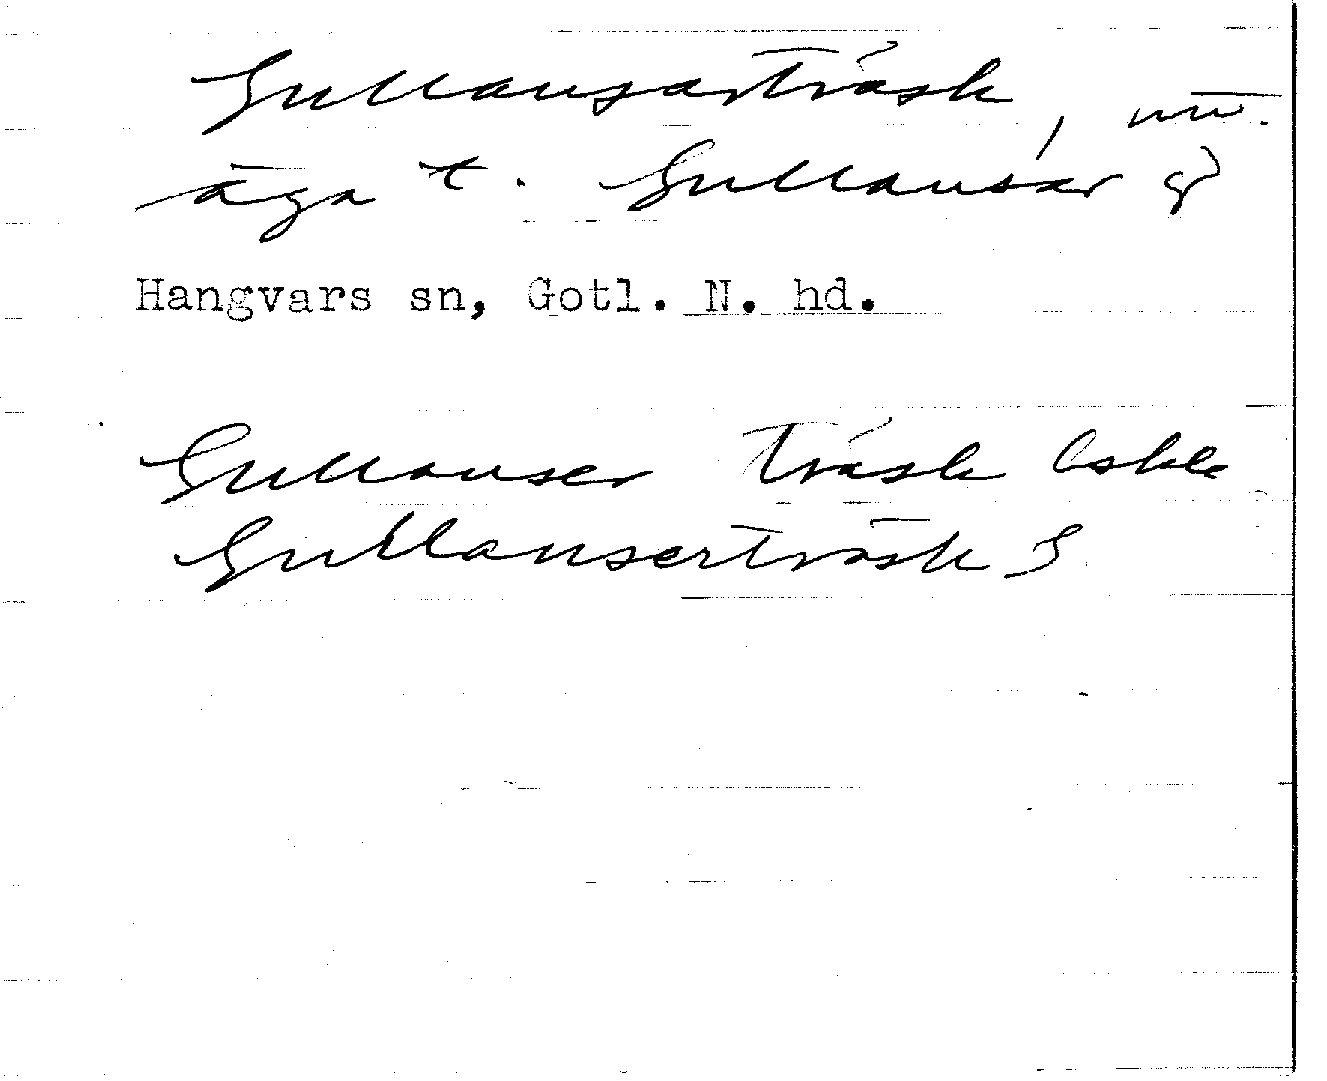 Gullausarträsk, nu.
äga t. Gullausar
Hangvars sn, Gotl. N. hd.
Gullauser Träsk
Gullauserträsk S